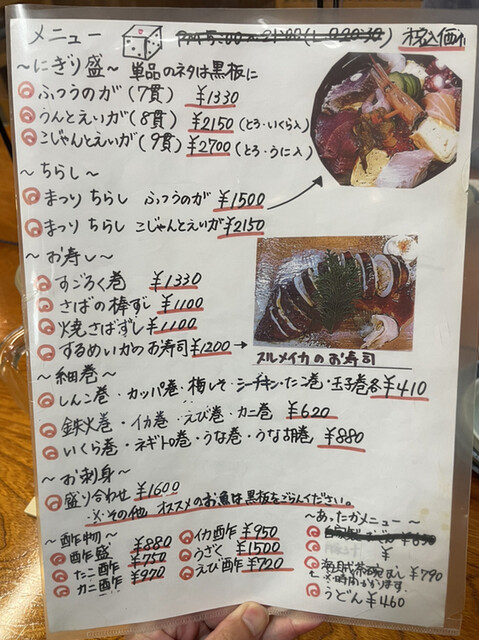 メニュー
PM5:00〜21:00(L.O20:30) 税込価格
〜にぎり盛〜 単品のネタは黒板に
ふつうのが(7貫) ¥1330
うんとえいが(8貫) ¥2150(とろ・いくら入)
こじゃんとえいが(9貫)¥2700(とろ・うに入)
〜ちらし〜
まつり ちらし ふつうのが ¥1500
まつり ちらし こじゃんとえいが¥2150
〜お寿し〜
すごろく巻 ¥1330
さばの棒ずし ¥1100
焼さばずし ¥1100
するめいかのお寿司¥1200
スルメイカのお寿司
〜細巻〜
しんこ巻・カッパ巻・梅しそ・シーチキン・たこ巻・玉子巻各¥410
鉄火巻・イカ巻・えび巻・カニ巻 ¥620
いくら巻・ネギトロ巻・うな巻・うな胡巻 ¥880
〜お刺身〜
盛り合わせ ¥1600
※その他 オススメのお魚は黒板をごらんください。
〜酢物〜 ¥880
酢盛 ¥750
たこ酢 ¥970
カニ酢
イカ酢 ¥950
うざく ¥1500
えび酢 ¥720
〜あったかメニュー〜
¥
茶碗むし ¥790
※時間かかります
うどん ¥460